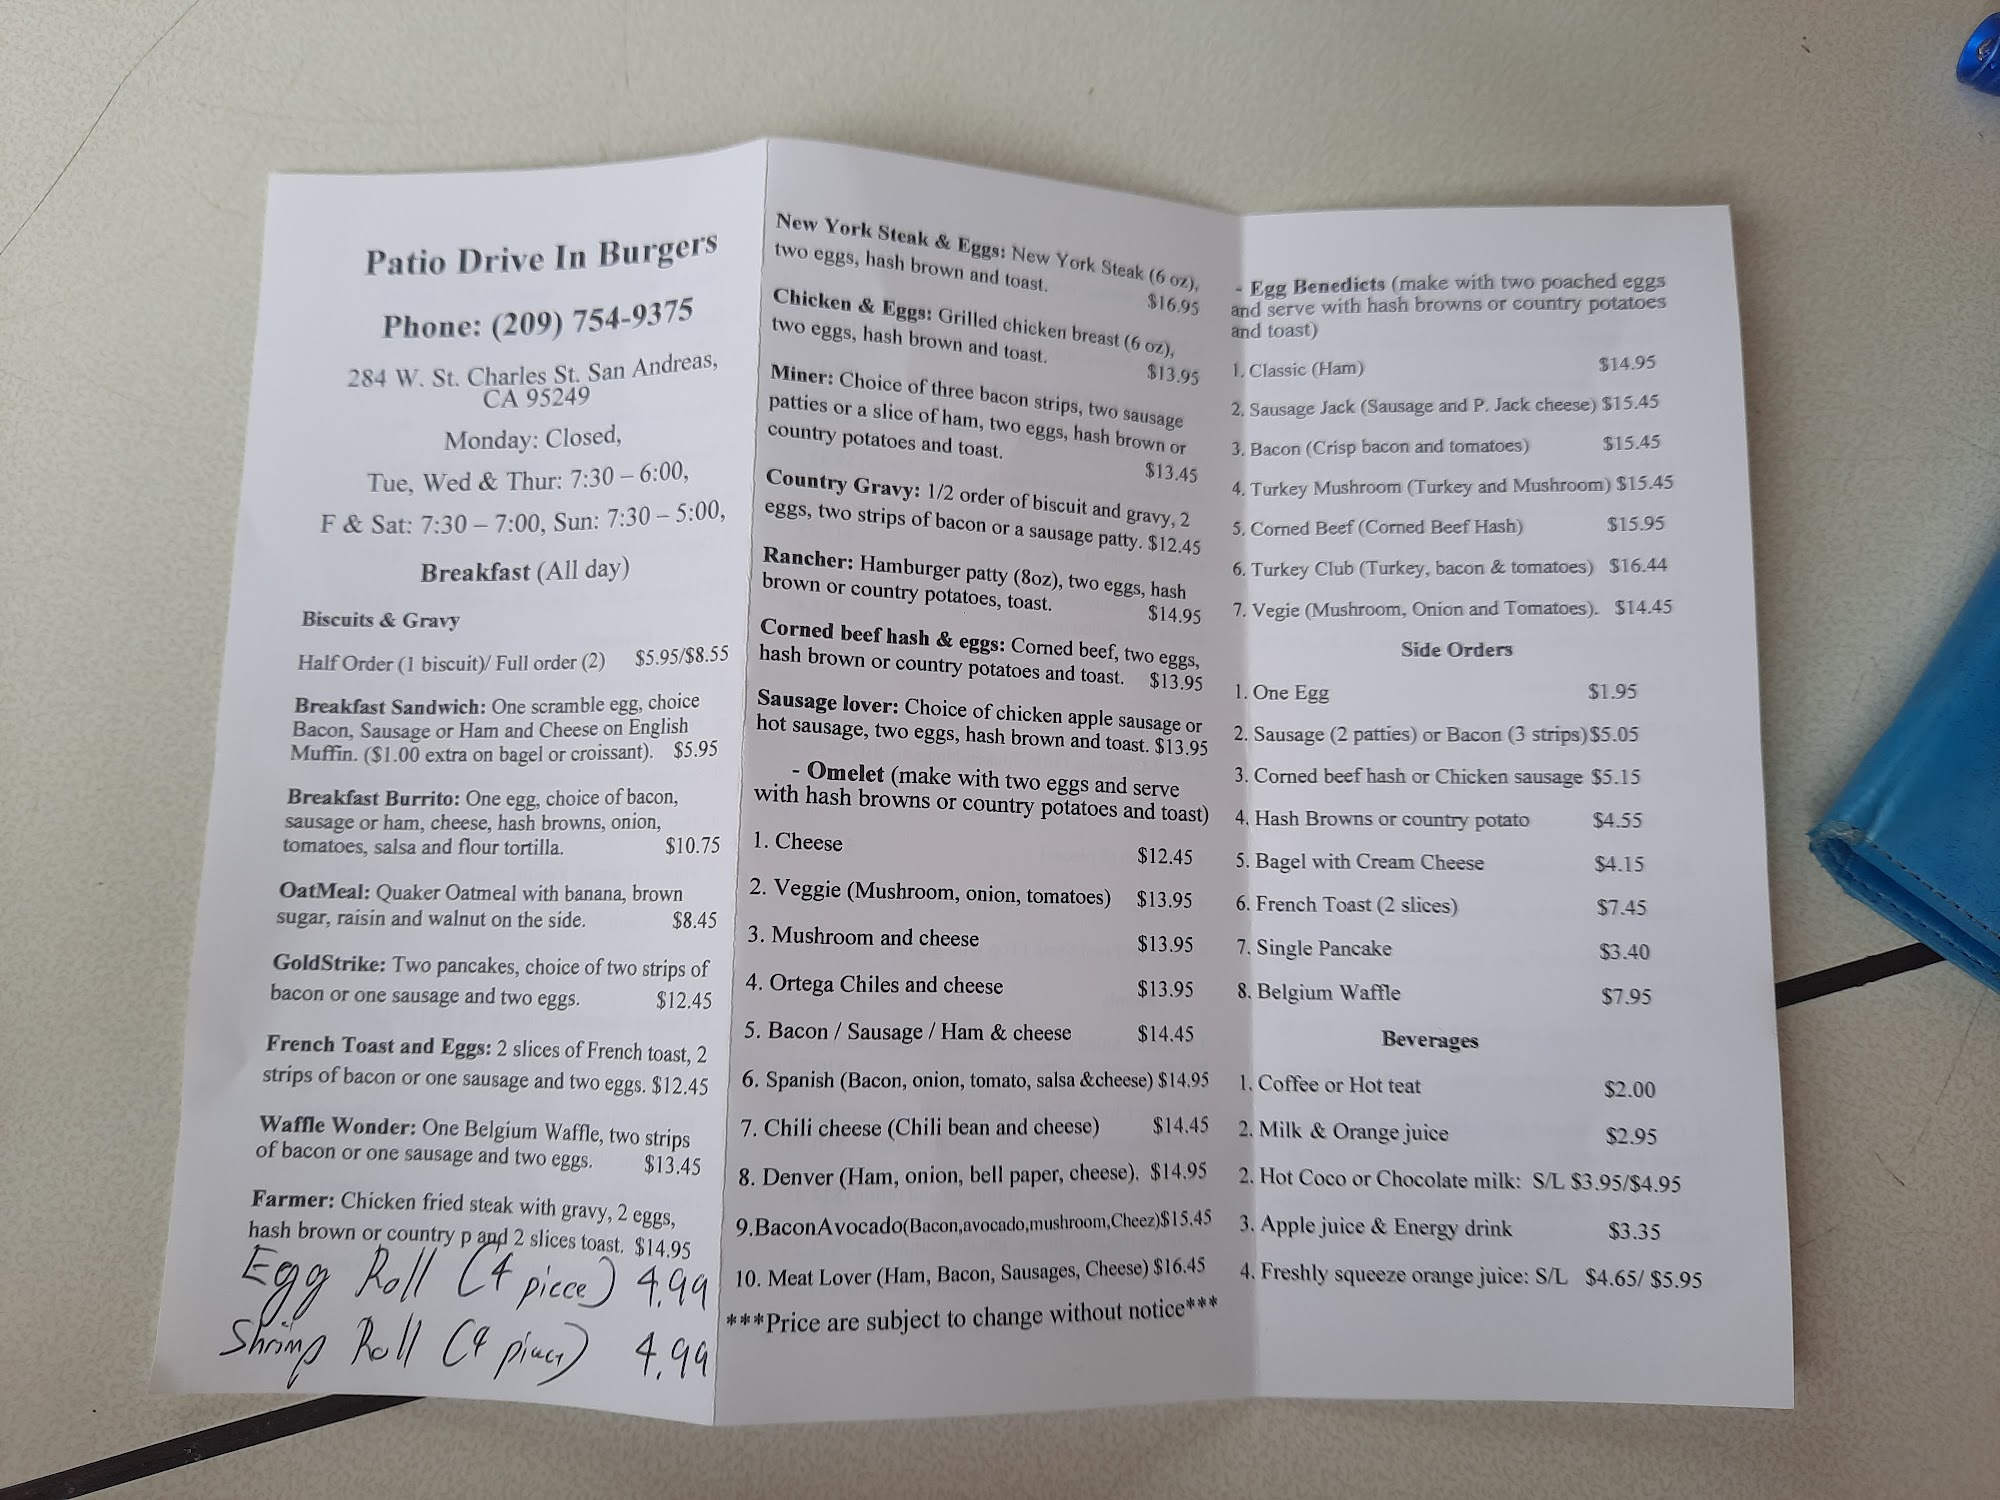 Patio Drive In Burgers
Phone: (209) 754-9375
284 W. St. Charles St. San Andreas,
CA 95249
Monday: Closed,
Tue, Wed & Thur: 7:30 – 6:00,
F & Sat: 7:30 – 7:00, Sun: 7:30 – 5:00,
Breakfast (All day)
Biscuits & Gravy
Half Order (1 biscuit)/ Full order (2) $5.95/$8.55
Breakfast Sandwich: One scramble egg, choice
Bacon, Sausage or Ham and Cheese on English
Muffin. ($1.00 extra on bagel or croissant). $5.95
Breakfast Burrito: One egg, choice of bacon,
sausage or ham, cheese, hash browns, onion,
tomatoes, salsa and flour tortilla. $10.75
OatMeal: Quaker Oatmeal with banana, brown
sugar, raisin and walnut on the side. $8.45
GoldStrike: Two pancakes, choice of two strips of
bacon or one sausage and two eggs. $12.45
French Toast and Eggs: 2 slices of French toast, 2
strips of bacon or one sausage and two eggs. $12.45
Waffle Wonder: One Belgium Waffle, two strips
of bacon or one sausage and two eggs. $13.45
Farmer: Chicken fried steak with gravy, 2 eggs,
hash brown or country p and 2 slices toast. $14.95
Egg Roll (4 piece) 4.99
Shrimp Roll (4 piece) 4.99
New York Steak & Eggs: New York Steak (6 oz),
two eggs, hash brown and toast. $16.95
Chicken & Eggs: Grilled chicken breast (6 oz),
two eggs, hash brown and toast. $13.95
Miner: Choice of three bacon strips, two sausage
patties or a slice of ham, two eggs, hash brown or
country potatoes and toast. $13.45
Country Gravy: 1/2 order of biscuit and gravy, 2
eggs, two strips of bacon or a sausage patty. $12.45
Rancher: Hamburger patty (8oz), two eggs, hash
brown or country potatoes, toast. $14.95
Corned beef hash & eggs: Corned beef, two eggs,
hash brown or country potatoes and toast. $13.95
Sausage lover: Choice of chicken apple sausage or
hot sausage, two eggs, hash brown and toast. $13.95
- Omelet (make with two eggs and serve
with hash browns or country potatoes and toast)
1. Cheese $12.45
2. Veggie (Mushroom, onion, tomatoes) $13.95
3. Mushroom and cheese $13.95
4. Ortega Chiles and cheese $13.95
5. Bacon / Sausage / Ham & cheese $14.45
6. Spanish (Bacon, onion, tomato, salsa &cheese) $14.95
7. Chili cheese (Chili bean and cheese) $14.45
8. Denver (Ham, onion, bell paper, cheese). $14.95
9.BaconAvocado(Bacon,avocado,mushroom,Cheez)$15.45
10. Meat Lover (Ham, Bacon, Sausages, Cheese) $16.45
***Price are subject to change without notice***
- Egg Benedicts (make with two poached eggs
and serve with hash browns or country potatoes
and toast)
1. Classic (Ham) $14.95
2. Sausage Jack (Sausage and P. Jack cheese) $15.45
3. Bacon (Crisp bacon and tomatoes) $15.45
4. Turkey Mushroom (Turkey and Mushroom) $15.45
5. Corned Beef (Corned Beef Hash) $15.95
6. Turkey Club (Turkey, bacon & tomatoes) $16.44
7. Vegie (Mushroom, Onion and Tomatoes). $14.45
Side Orders
1. One Egg $1.95
2. Sausage (2 patties) or Bacon (3 strips)$5.05
3. Corned beef hash or Chicken sausage $5.15
4. Hash Browns or country potato $4.55
5. Bagel with Cream Cheese $4.15
6. French Toast (2 slices) $7.45
7. Single Pancake $3.40
8. Belgium Waffle $7.95
Beverages
1. Coffee or Hot teat $2.00
2. Milk & Orange juice $2.95
2. Hot Coco or Chocolate milk: S/L $3.95/$4.95
3. Apple juice & Energy drink $3.35
4. Freshly squeeze orange juice: S/L $4.65/ $5.95